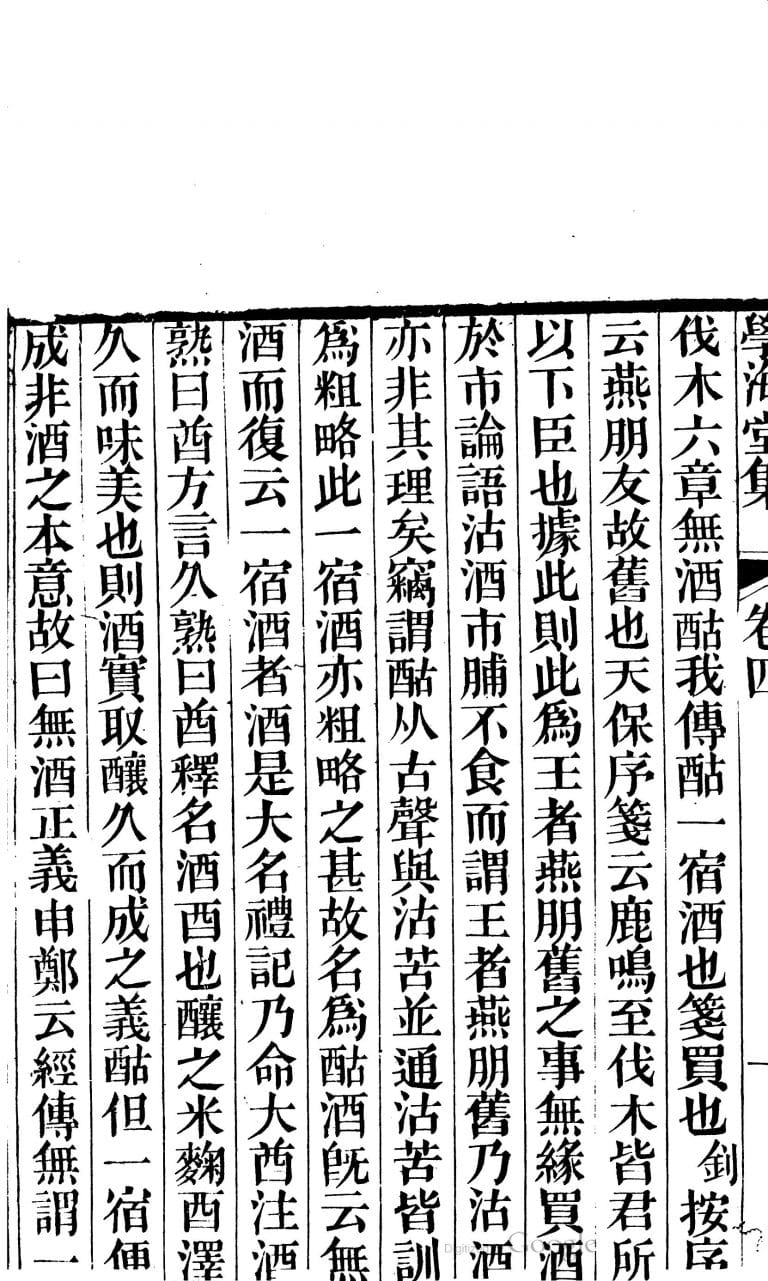 學海堂集 卷四
伐木六章無酒酤我傳酤一宿酒也箋買也釗按序
云燕朋友故舊也天保序箋云鹿鳴至伐木皆君所
以下臣也據此則此為王者燕朋舊之事無緣買酒
於市論語沽酒市脯不食而謂王者燕朋舊乃沽酒
亦非其理矣竊謂酤从古聲與沽苦並通沽苦皆訓
為粗略此一宿酒亦粗略之甚故名為酤酒旣云無
酒而復云一宿酒者酒是大名禮記乃命大酋注酒
熟曰酋方言久熟曰酋釋名酒酉也釀之米麴酉澤
久而味美也則酒實取釀久而成之義酤但一宿便
成非酒之本意故曰無酒正義申鄭云經傳無謂一
Digitized by Google